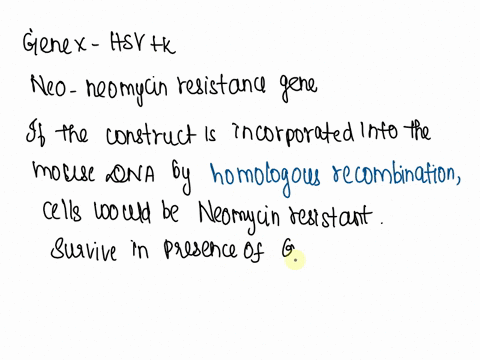 Gene x - HSV tk
Neo - neomycin resistance gene
If the construct is incorporated into the
mouse DNA by homologous recombination,
cells would be Neomycin resistant.
Survive in presence of G